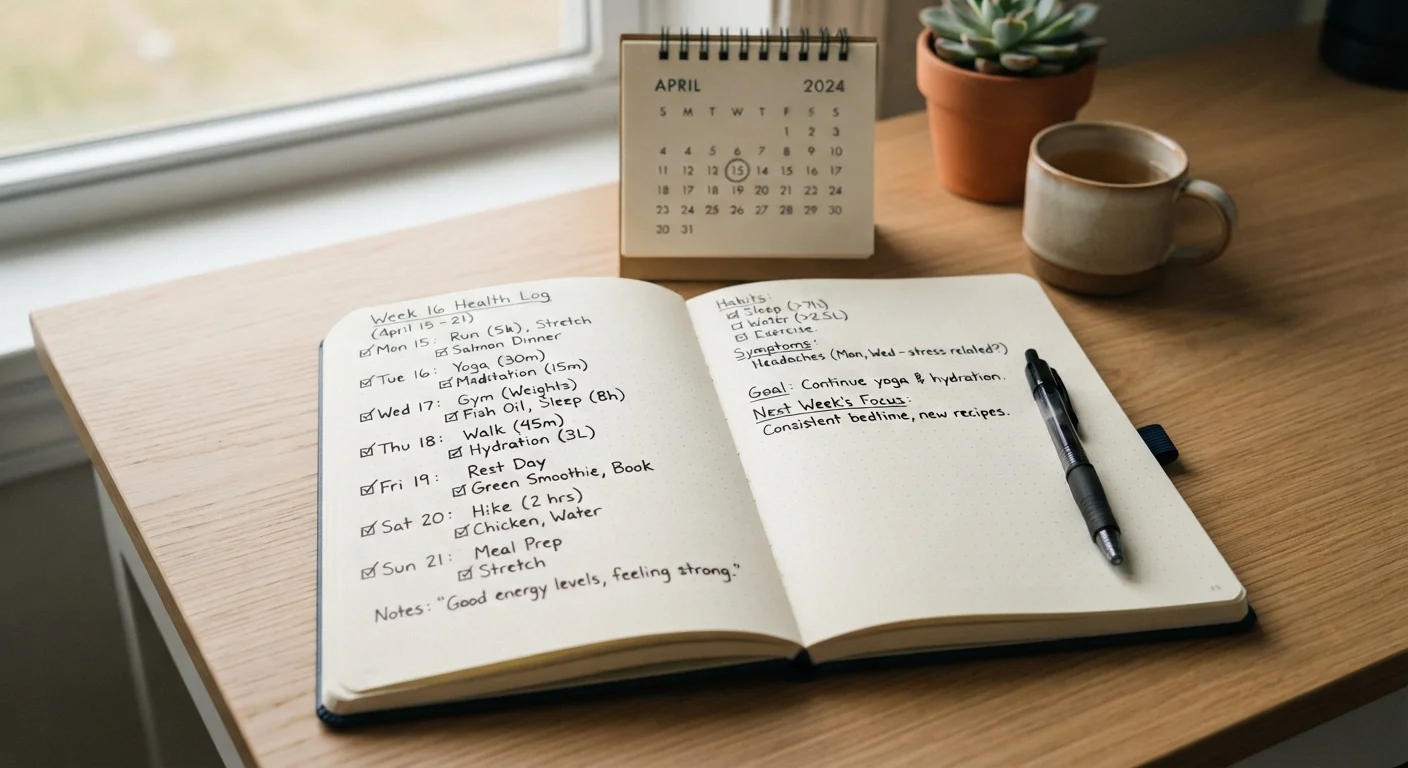 APRIL 2024
S M T W T F S S
1 2 3
4 4 5 6 7 8 9 10
11 12 12 15 14 15 16 17
18 17 18 19 20 21 22 24
23 24 25 26 27 28 29 30
30 31
Week 16 Health Log
(April 15-21)
☑ Mon 15: Run (5k), Stretch
☑ Salmon Dinner
☑ Tue 16: Yoga (30m)
☑ Maditation (15m)
☑ Wed 17: Gym (Weights)
☑ Fish Oil, Sleep (8h)
☑ Thu 18: Walk (45m)
☑ Hydration (3L)
☑ Fri 19: Rest Day
☑ Green Smoothie, Book
☑ Sat 20: Hike (2 hrs)
☑ Chicken, Water
☑ Sun 21: Meal Prep
☑ Stretch
Notes: "Good energy levels, feeling strong."
Habits:
☑ Sleep (>7h)
☑ Water (>2.5L)
☑ Exercise
Symptoms:
Headaches (Mon, Wed - stress related?)
Goal: Continue yoga & hydration.
Nest Week's Focus:
Consistent bedtime, new recipes.